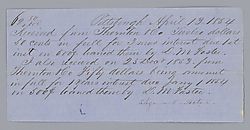 Pittsburgh April 12. 1864
Received from Thornton & Co Twelve dollars
50 cents in full for 3 mos interest due 1st
inst on 500$ loaned them by L. M. Foster.
I also received on 25 Decr 1863, from
Thornton & Co Fifty Dollars being amount
in full for interest due Jany 1 1864
on 500$ loaned them by L M Foster.